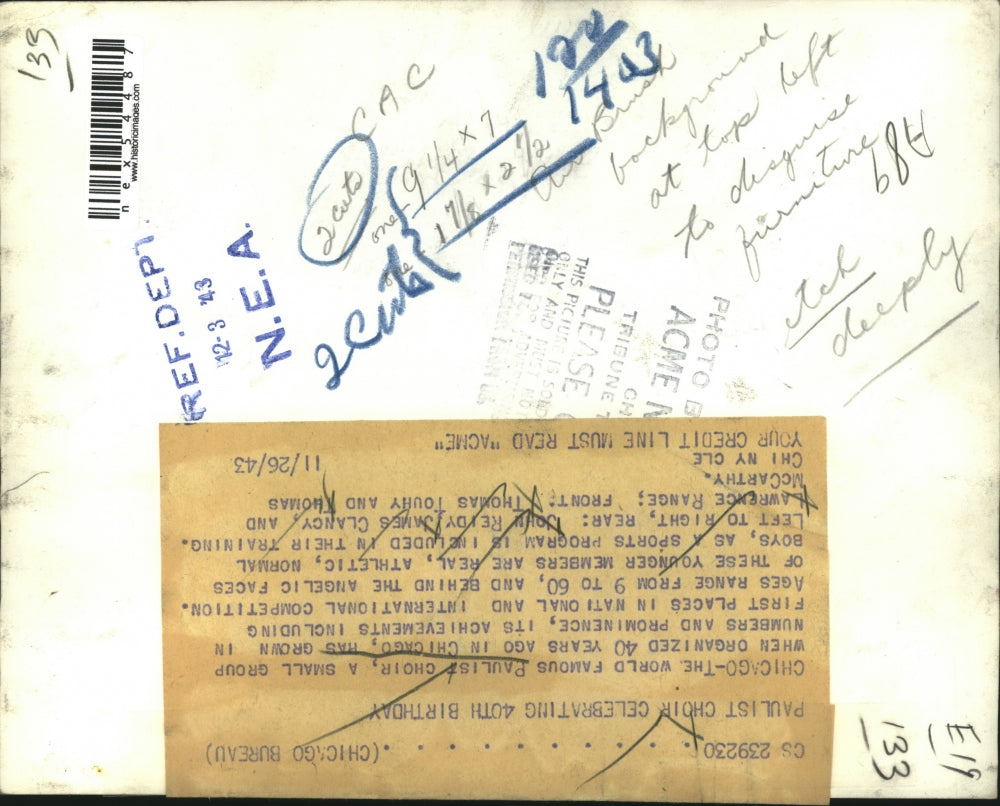 133
nex54487
www.historicimages.com
CAC
122
1403
2 cuts
one 9 1/4 x 7
one 1 7/8 x 2 1/2
2 Cuts
Air Brush
background
at top left
to disguise
furniture
A89
etch
deeply
REF. DEPT.
12-3 '43
N.E.A.
THIS PICTURE IS SOLD
ONLY AND MUST NOT
PLEASE
PHOTO B
ACME N
TRIBUNE T
CH
CS 239230. . . . . . . . . . (CHICAGO BUREAU)
PAULIST CHOIR CELEBRATING 40TH BIRTHDAY
CHICAGO-THE WORLD FAMOUS PAULIST CHOIR, A SMALL GROUP
WHEN ORGANIZED 40 YEARS AGO IN CHICAGO, HAS GROWN IN
NUMBERS AND PROMINENCE, ITS ACHIEVEMENTS INCLUDING
FIRST PLACES IN NATIONAL AND INTERNATIONAL COMPETITION.
AGES RANGE FROM 9 TO 60, AND BEHIND THE ANGELIC FACES
OF THESE YOUNGER MEMBERS ARE REAL, ATHLETIC, NORMAL
BOYS, AS A SPORTS PROGRAM IS INCLUDED IN THEIR TRAINING.
LEFT TO RIGHT, REAR: JOHN REIDY, JAMES CLANCY, AND
LAWRENCE RANGE; FRONT: THOMAS TOUHY AND THOMAS
MCCARTHY.
CHI NY CLE
YOUR CREDIT LINE MUST READ "ACME" 11/26/43
E19
133